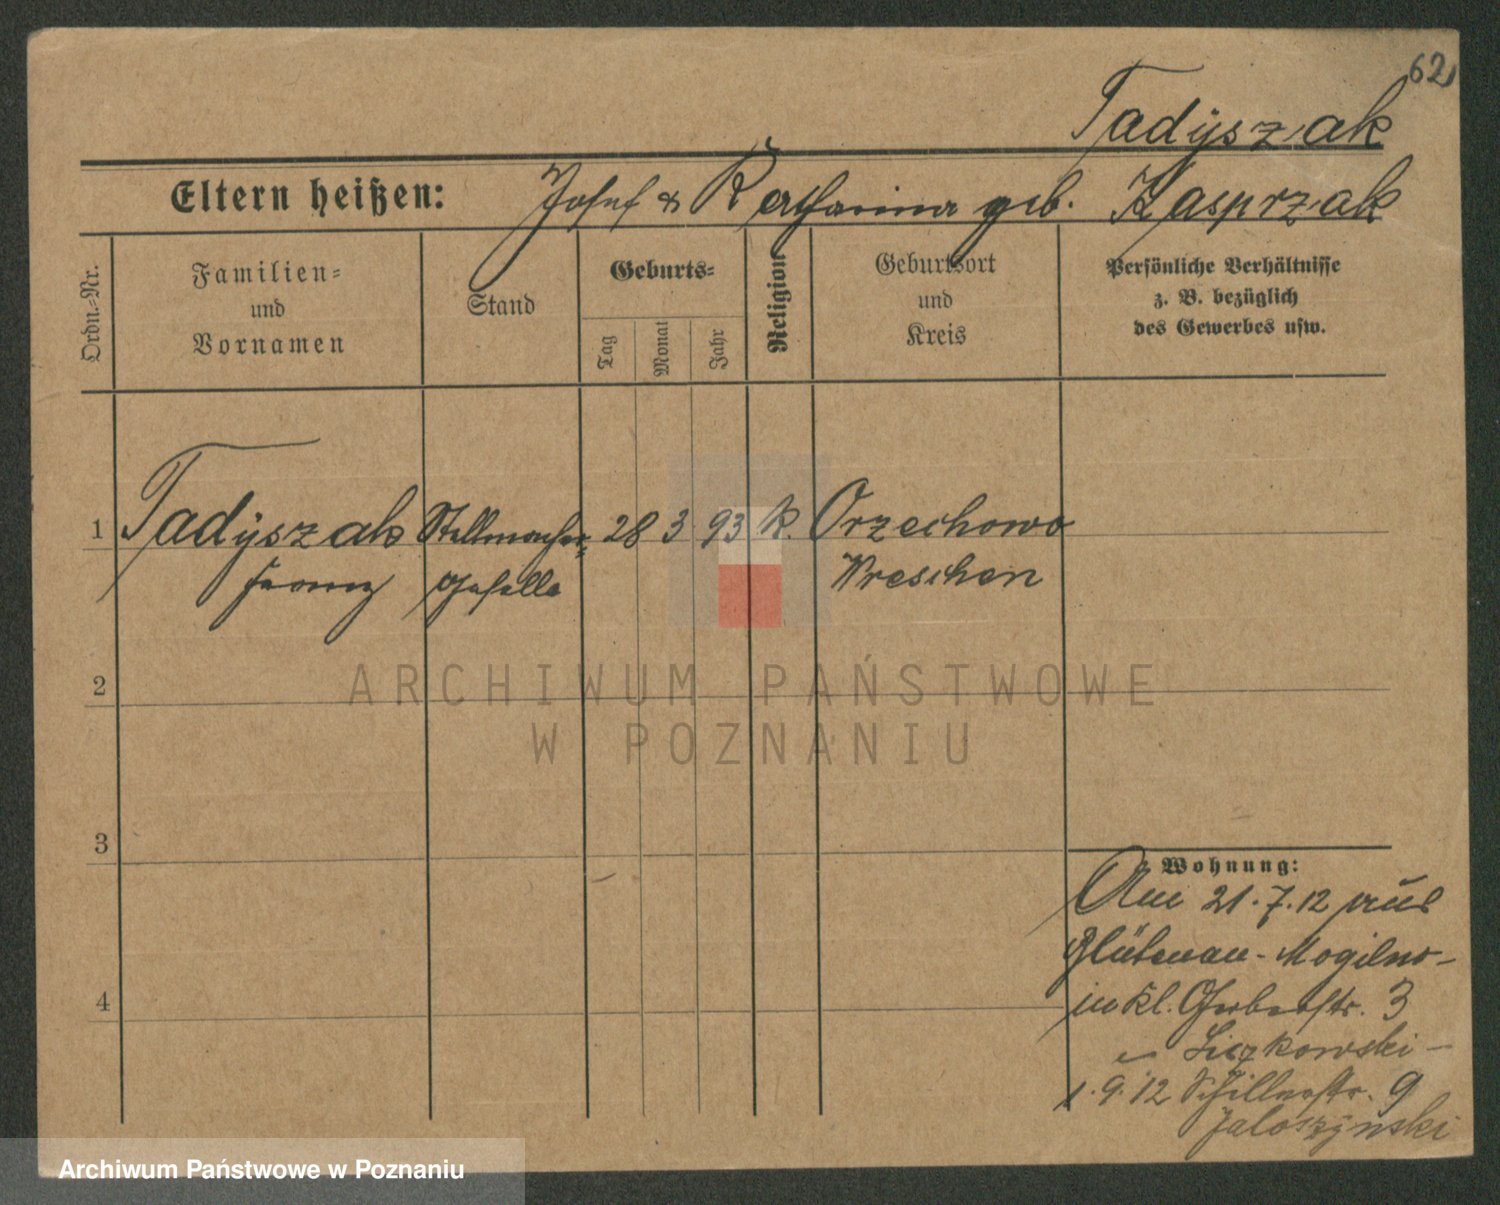 62
Tadyszak
Eltern heißen: Josef & Katharina geb. Kasprzak
Ordn.-Nr.
Familien-
und
Vornamen
Stand
Geburts-
Tag
Monat
Jahr
Religion
Geburtsort
und
Kreis
Persönliche Verhältnisse
z. B. bezüglich
des Gewerbes usw.
1 Tadyszak Stellmacher- 28 3 93 k. Orzechowo
Franz geselle Wreschen
2
ARCHIWUM PAŃSTWOWE
W POZNANIU
3
Wohnung:
Am 21.7.12 aus
Blütenau-Mogilno-
in Kl. Gerberstr. 3
Liczkowski-
1.9.12 Schillerstr. 9
Jaloszynski
4
Archiwum Państwowe w Poznaniu